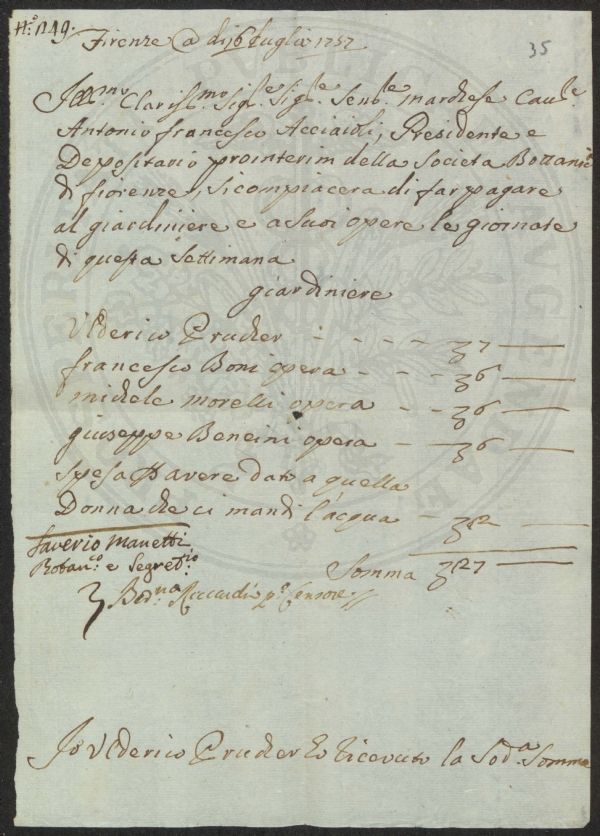 N.º 1149.
35
Firenze @ dì 16 Luglio 1757
Illmo. Clarissmo. Sigle. Sigle. Senle. marchese Caule.
Antonio francesco Acciaioli, Presidente e
Depositario prointerim della Societa Bottanica
di fiorenze, si compiacera di far pagare
al giardiniere e a suoi opere le giornate
di questa Settimana
giardiniere
Ulderico Prucher - - - - 7
francesco Boni opera - - 6
michele morelli opera - - 6
giuseppe Bencini opera - - 6
spesa P avere dato a quella
Donna che ci mandi l'acqua - 2
Saverio Manetti
Botanco. e Segretrio.
Somma 27
Berna. Riccardi Po. Censore
Io Ulderico Prucher ho ricevuto la Soda. Somma